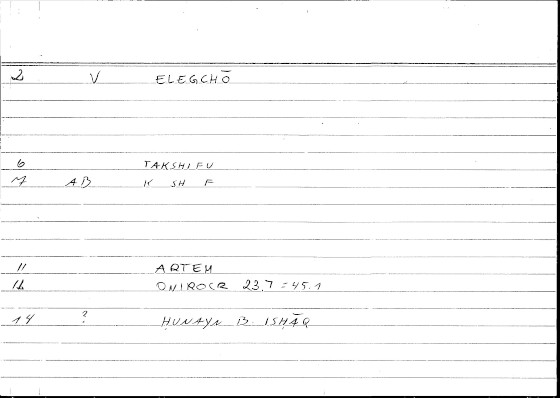 2 V ELEGCHŌ
6 TAKSHIFU
7 AB K SH F
11 ARTEM
12 ONIROCR 23.7 = 45.1
14 ? ḤUNAYN B ISḤĀQ